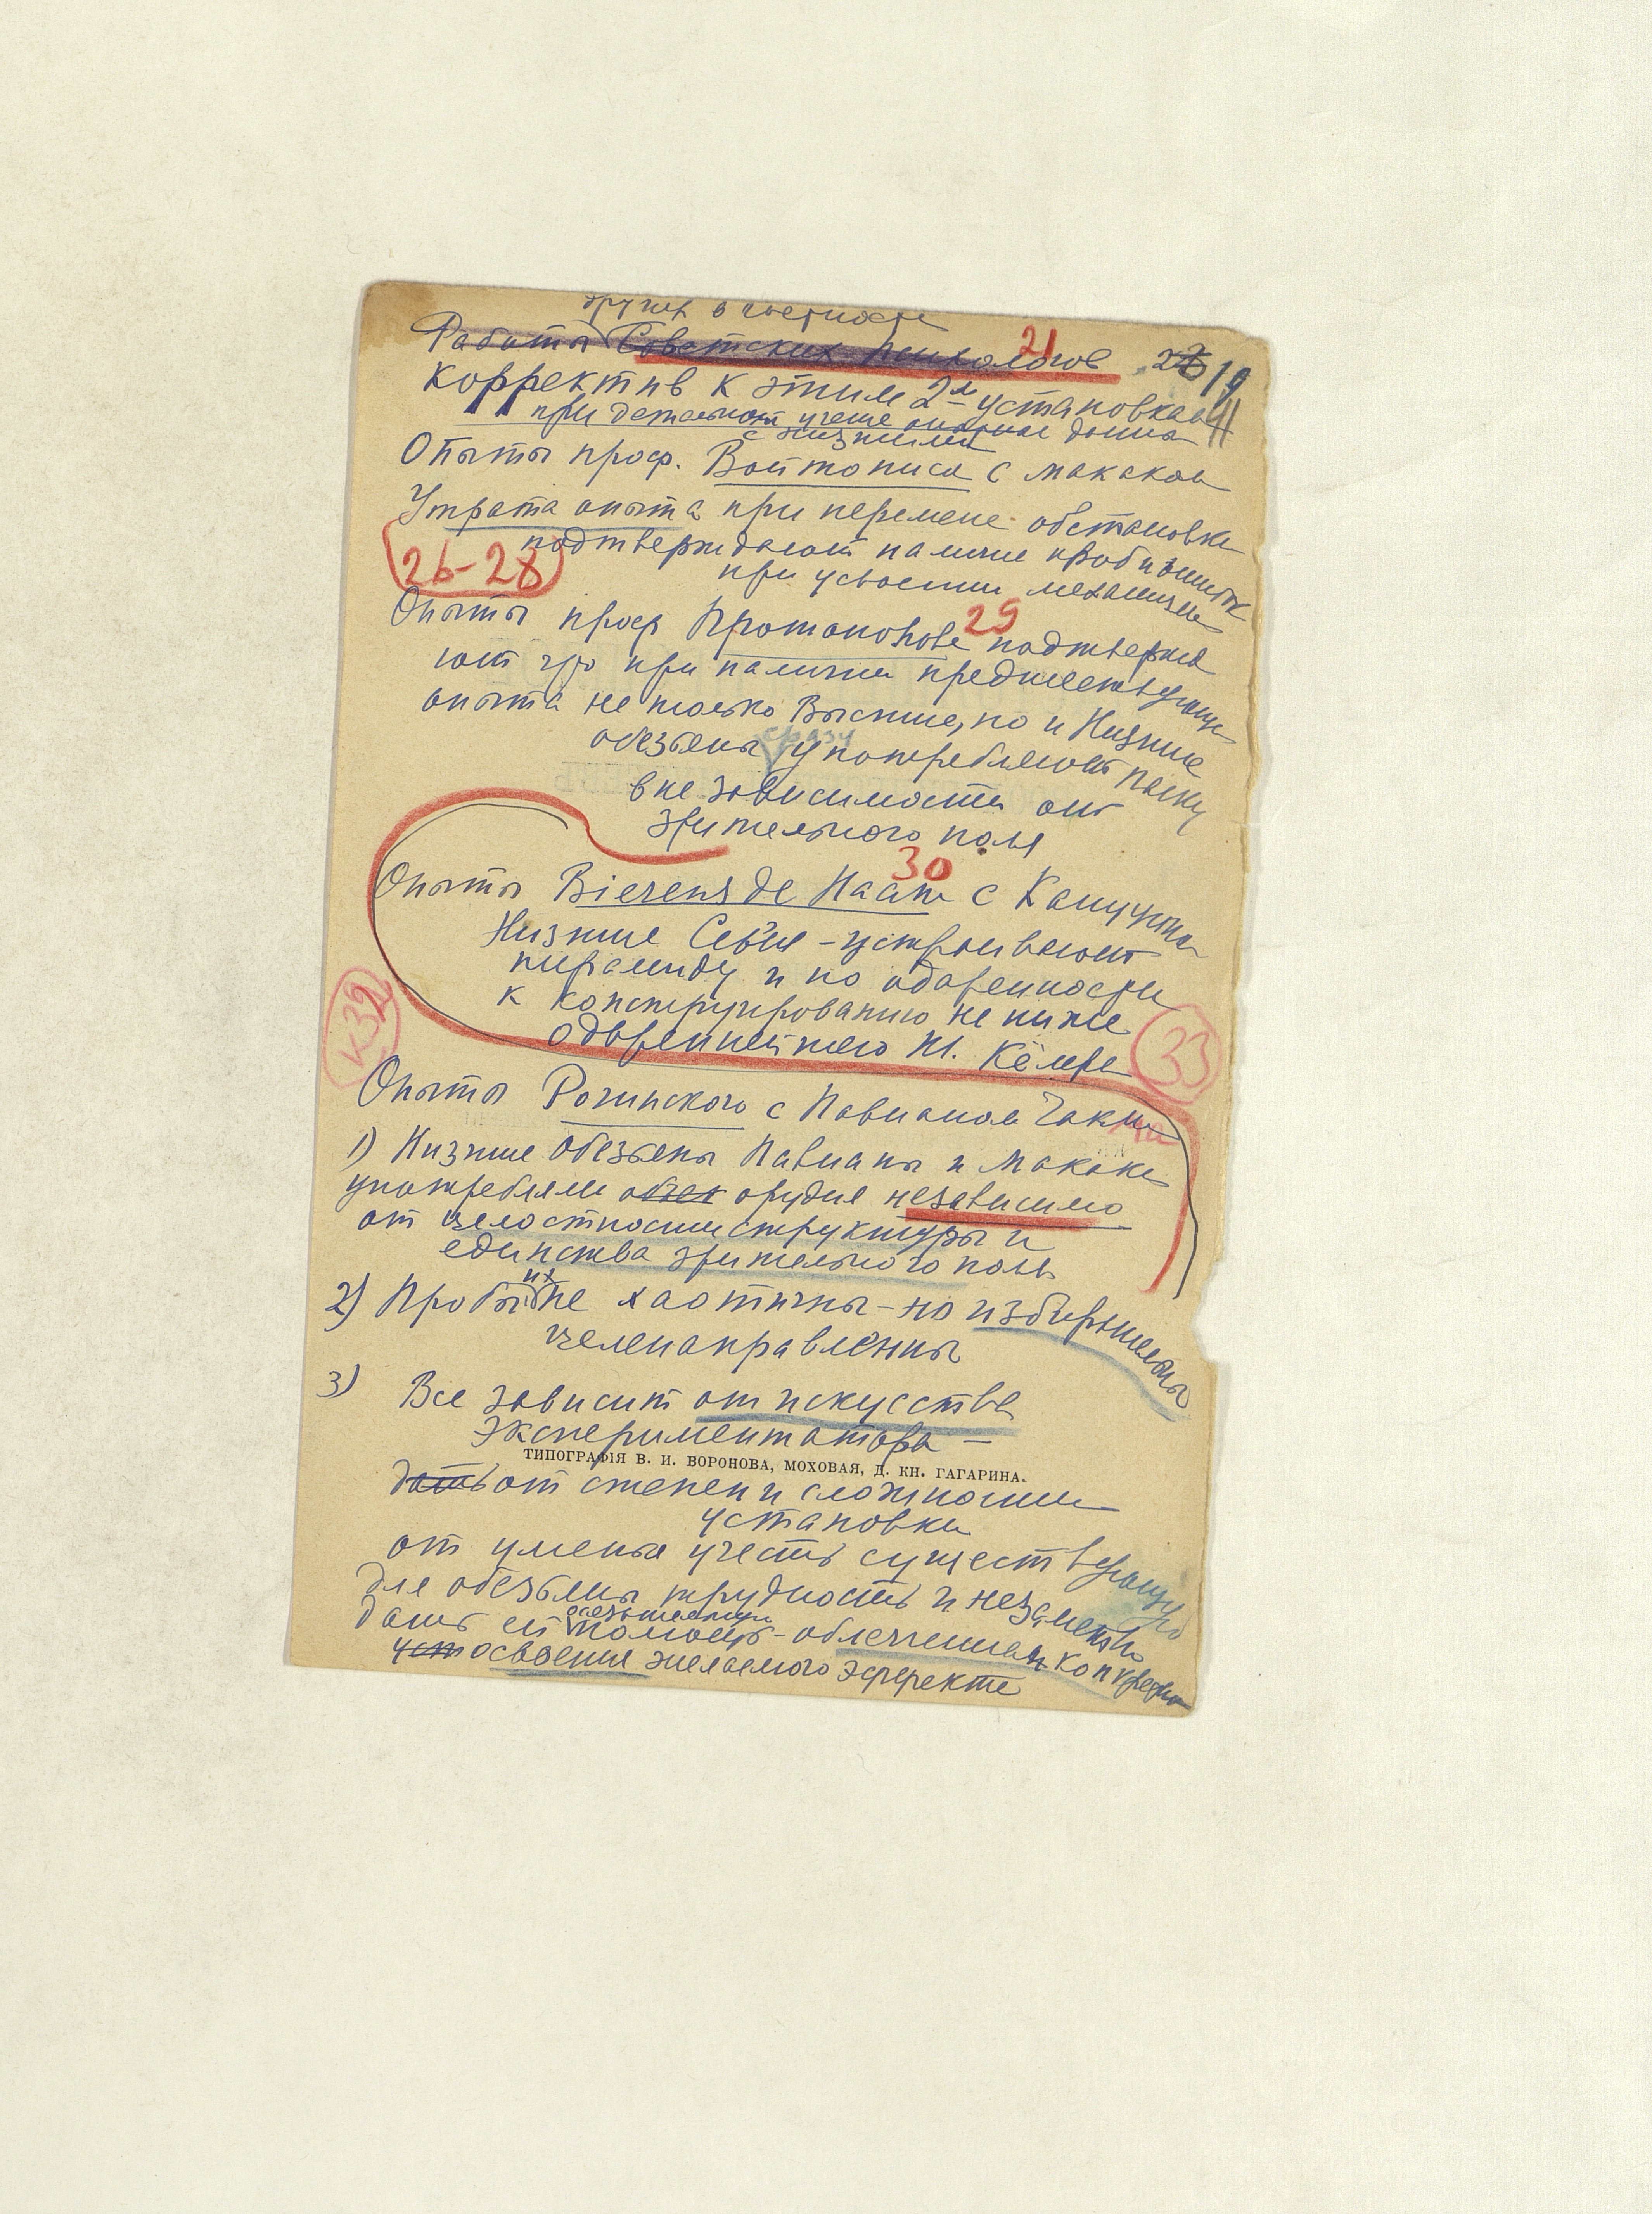 других в частности
Работы Советских психологов 21 19
Корректив к этим 2м установкам
при детальном
с низшими
Опыты проф. Войтониса с макакой
Утрата опыта при перемене обстановки
подтверждают наличие проб и ошибок
26-28
при усвоении механизма
Опыты проф Протопопова 29 подтвержд
ают что при наличии предшествующ
опыта не только Высшие, но и Низшие
сразу
обезьяны употребляют палку
вне зависимости от
зрительного поля
30
Опыты Bierens de Haan с Капуцина
Низшие Cebus - устраивают
пирамиду и по одаренности
к конструированию не ниже
К32
одареннейшего Ш. Кёлера
33
Опыты Рогинского с Павианом Чакма
1) Низшие обезьяны Павианы и макаки
употребляли орудия независимо
от целостности структуры и
единства зрительного поля
их
2) Пробы не хаотичны - но избирательны
целенаправлены
3) Все зависит от искусства
экспериментатора -
ТИПОГРАФІЯ В. И. ВОРОНОВА, МОХОВАЯ, Д. КН. ГАГАРИНА.
дать от степени сложности
установки
от уменья учесть существующую
для обезьяны трудность и незаметно
дать ей помощь - облегчение
освоения желаемого эффекта